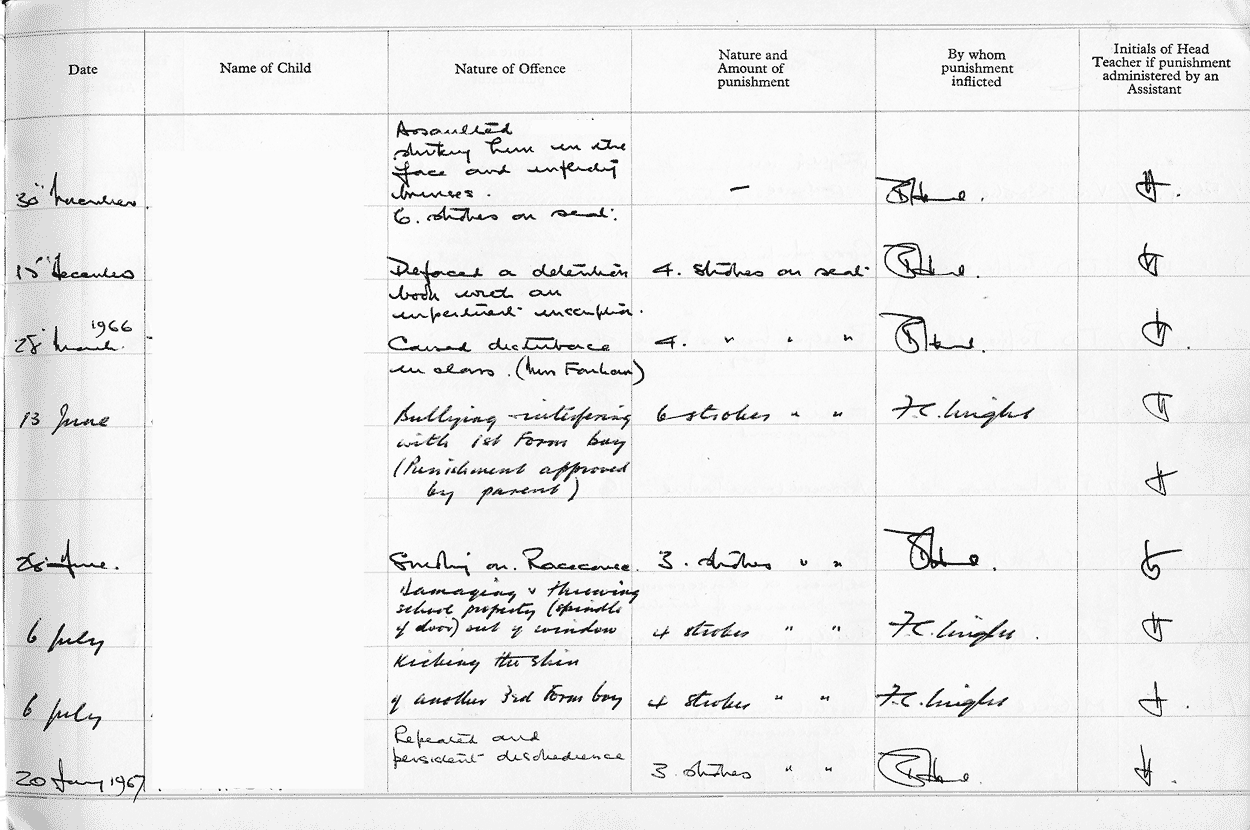 Date
Name of Child
Nature of Offence
Nature and
Amount of
punishment
By whom
punishment
inflicted
Initials of Head
Teacher if punishment
administered by an
Assistant
Assaulted
striking him in the
face and inflicting
bruises.
30" November.
—
6. strokes on seat.
15" December
Defaced a detention
4. strokes on seat.
book with an
impertinent inscription.
1966
28" March.
Caused disturbance
4. " " "
in class. (Miss Fanham)
13 June
Bullying - interfering
6 strokes " "
F.C. Wright
with 1st Form boy
(Punishment approved
by parent)
28 June.
Smoking on Racecourse.
3. strokes " "
Damaging & throwing
school property (spindle
of door) out of window
6 July
4 strokes " "
F.C. Wright.
Kicking the shin
of another 3rd Form boy
6 July
4 strokes " "
F.C. Wright
Repeated and
persistent disobedience
20 Jany 1967
3 strokes " "